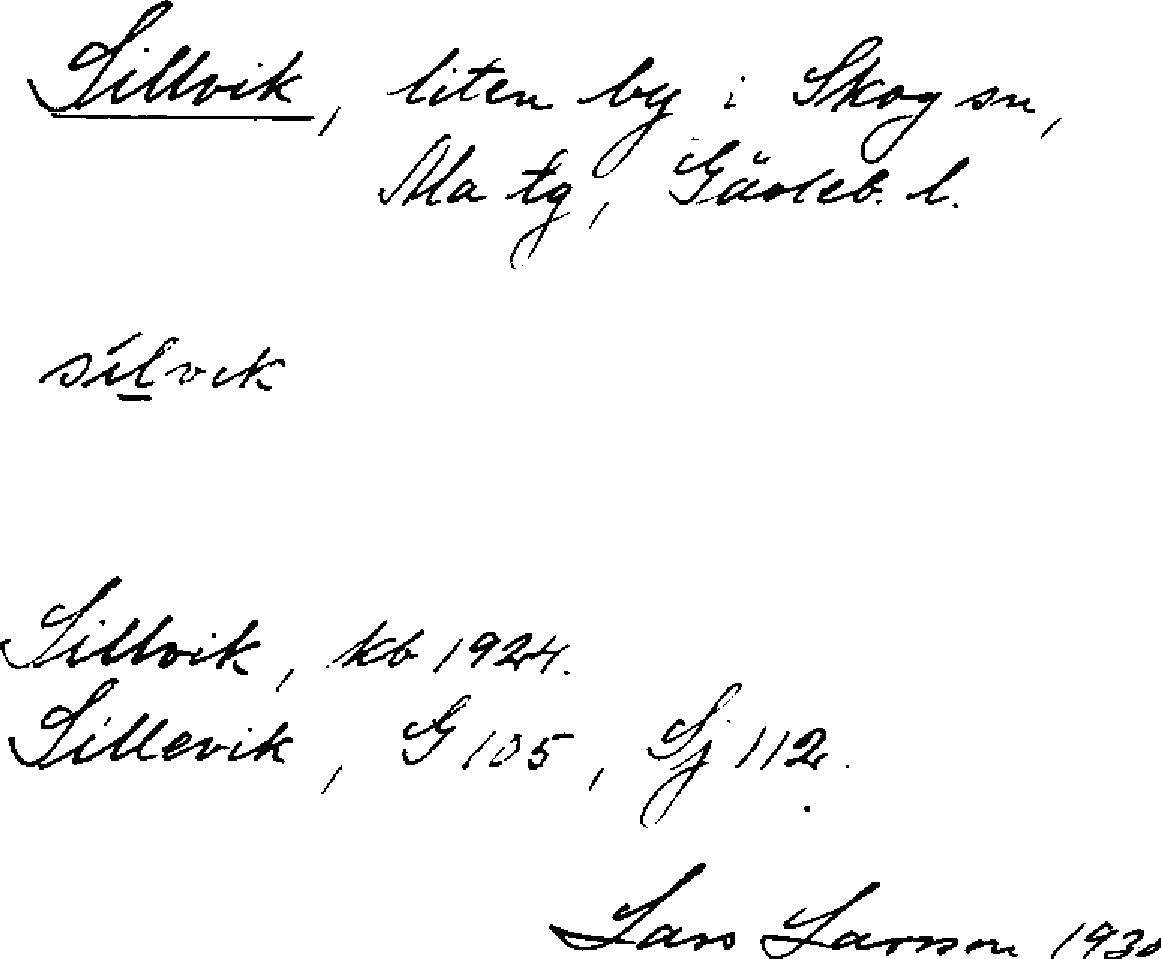 Sillvik, liten by i Skog sn,
Ala tg, Gävleb. l.
sílvik
Sillvik, kb 1924.
Sillevik, G 105, Sj 112.
Lars Larsson 1930